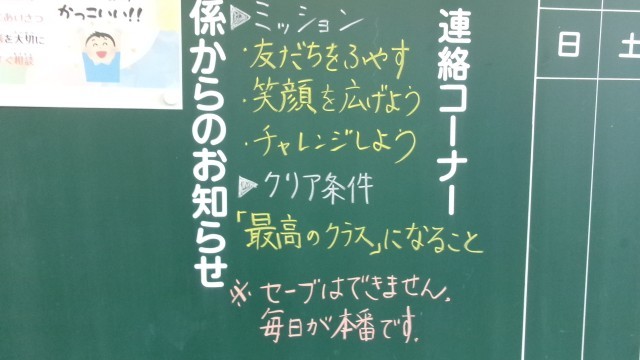 かっこいい!!
を大切に
係からのお知らせ
連絡コーナー
日 土
▷ミッション
・友だちをふやす
・笑顔を広げよう
・チャレンジしよう
▷クリア条件
「最高のクラス」になること
※セーブはできません.
毎日が本番です.